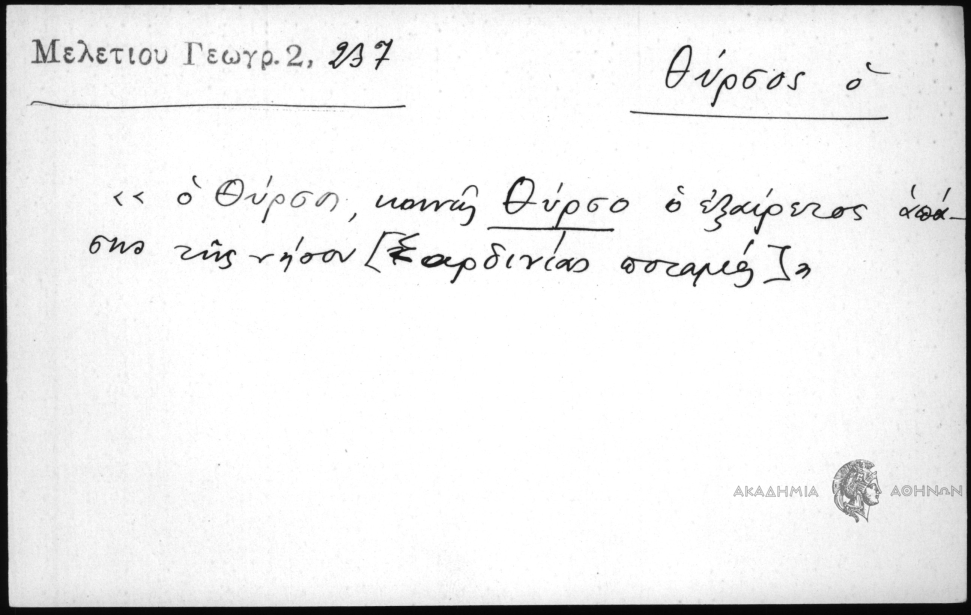 Μελετιου Γεωγρ. 2, 237
Θύρσος ὁ
«ὁ Θύρσος, κοινῶς Θύρσο ὁ ἐξαίρετος ἁπά-
σης τῆς νήσου [Σαρδινίας ποταμός]»
ΑΚΑΔΗΜΙΑ ΑΘΗΝΩΝ